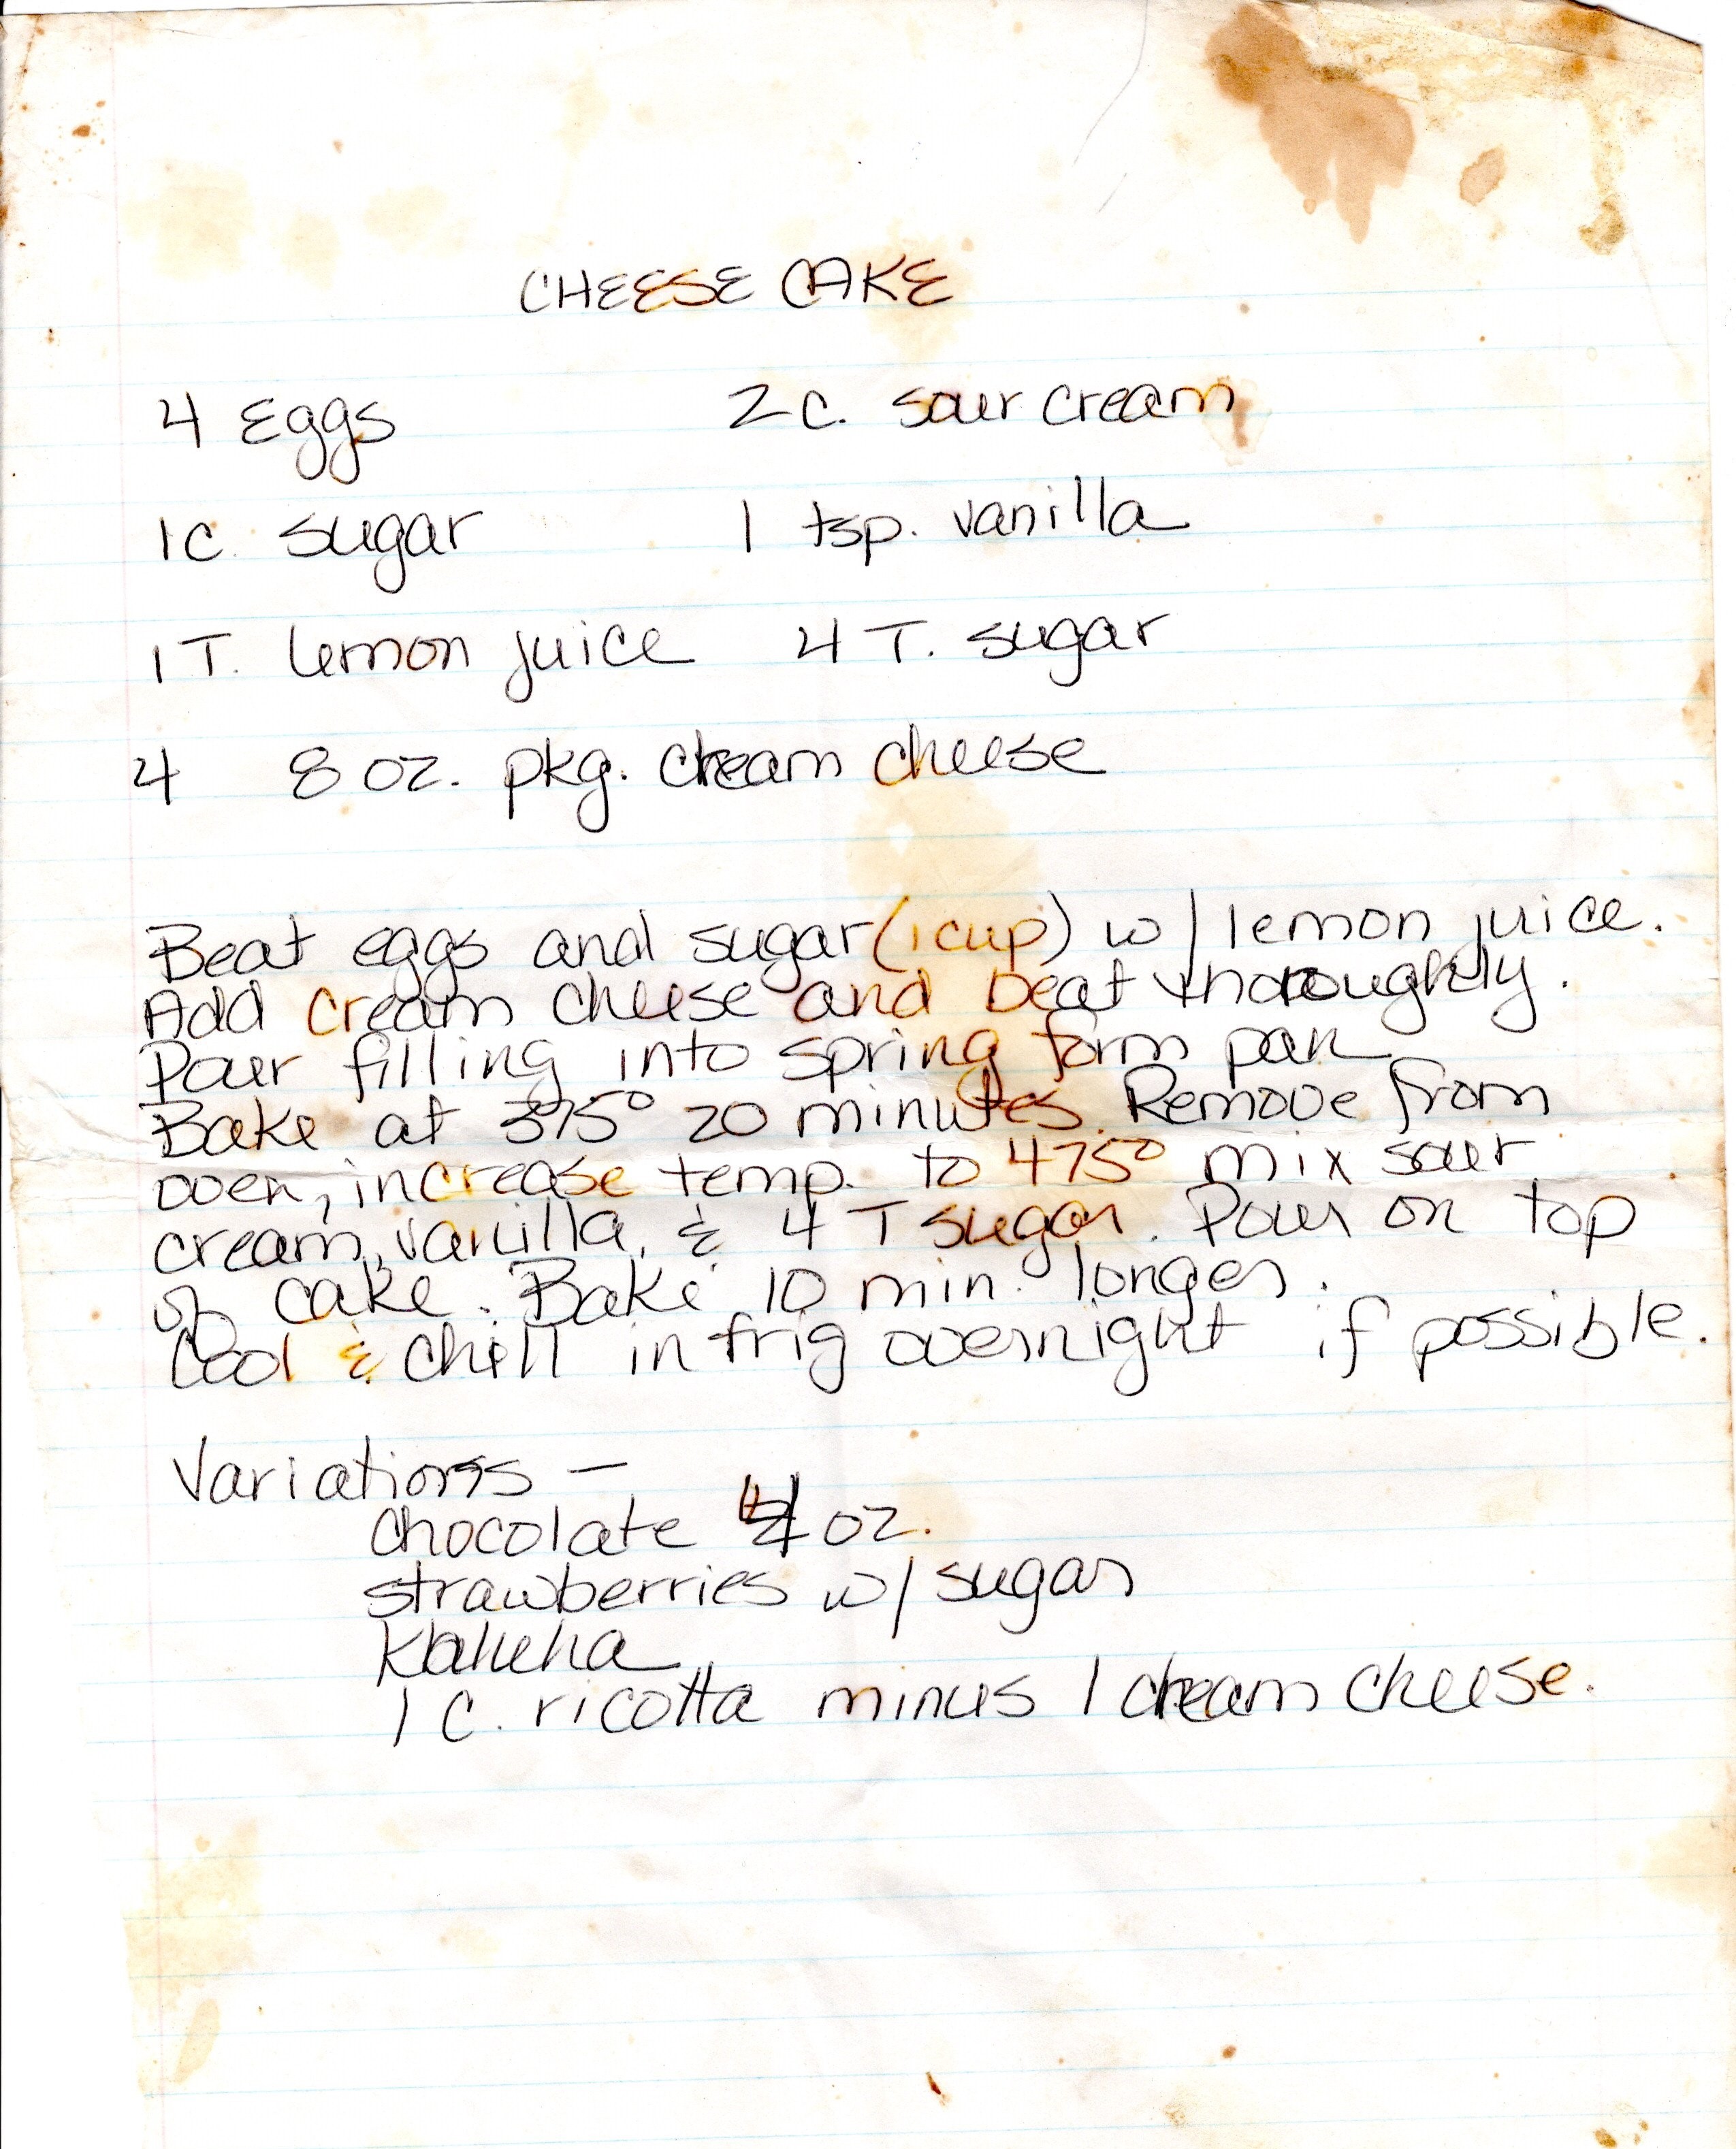 CHEESE CAKE
4 Eggs 2 C. sour cream
1 C. sugar 1 tsp. vanilla
1 T. lemon juice 4 T. sugar
4 8 oz. pkg. cream cheese
Beat eggs and sugar (1 cup) w/ lemon juice.
Add cream cheese and beat thoroughly.
Pour filling into spring form pan
Bake at 375° 20 minutes. Remove from
oven, increase temp. to 475° mix sour
cream, vanilla, & 4 T sugar. Pour on top
of cake. Bake 10 min. longer.
Cool & chill in frig overnight if possible.
Variations –
chocolate oz.
strawberries w/ sugar
1 C. ricotta minus 1 cream cheese.